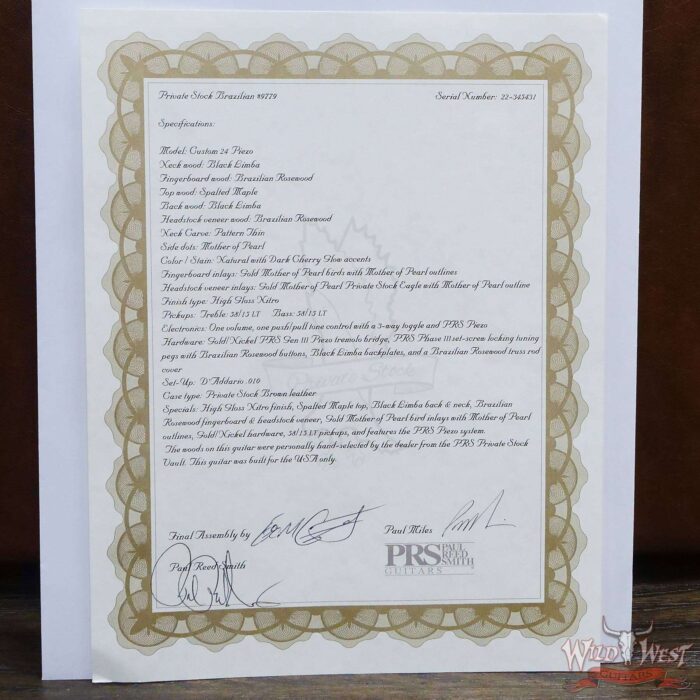 Private Stock Brazilian #9779 Serial Number: 22-345431
Specifications:
Model: Custom 24 Piezo
Neck wood: Black Limba
Fingerboard wood: Brazilian Rosewood
Top wood: Spalted Maple
Back wood: Black Limba
Headstock veneer wood: Brazilian Rosewood
Neck Carve: Pattern Thin
Side dots: Mother of Pearl
Color / Stain: Natural with Dark Cherry Glow accents
Fingerboard inlays: Gold Mother of Pearl birds with Mother of Pearl outlines
Headstock veneer inlays: Gold Mother of Pearl Private Stock Eagle with Mother of Pearl outline
Finish type: High Gloss Nitro
Pickups: Treble: 58/15 LT Bass: 58/15 LT
Electronics: One volume, one push/pull tone control with a 3-way toggle and PRS Piezo
Hardware: Gold/Nickel PRS Gen III Piezo tremolo bridge, PRS Phase III set-screw locking tuning
pegs with Brazilian Rosewood buttons, Black Limba backplates, and a Brazilian Rosewood truss rod
cover
Set-Up: D'Addario .010
Case type: Private Stock Brown leather
Specials: High Gloss Nitro finish, Spalted Maple top, Black Limba back & neck, Brazilian
Rosewood fingerboard & headstock veneer, Gold Mother of Pearl bird inlays with Mother of Pearl
outlines, Gold/Nickel hardware, 58/15 LT pickups, and features the PRS Piezo system.
The woods on this guitar were personally hand-selected by the dealer from the PRS Private Stock
Vault. This guitar was built for the USA only.
Final Assembly by
Paul Miles
Paul Reed Smith
PRS PAUL REED SMITH
GUITARS
WILD WEST
GUITARS